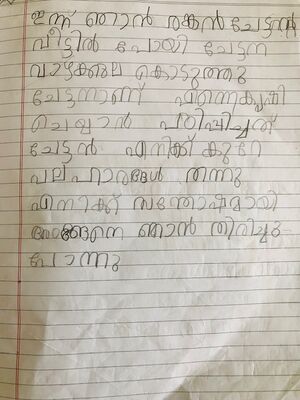 ഇന്ന് ഞാൻ രങ്കൻ ചേട്ടന്റ
വീട്ടിൽ പോയി ചേട്ടന
വാഴക്കുല കൊടുത്തു
ചേട്ടനാണ് എന്നെകൃഷി
ചെയ്യാൻ പഠിപ്പിച്ചത്
ചേട്ടൻ എനിക്ക് കുറേ
പലഹാരങ്ങൾ തന്നു
എനിക്ക് സന്തോഷമായി
അങ്ങനെ ഞാൻ തിരിച്ചു
പോന്നു